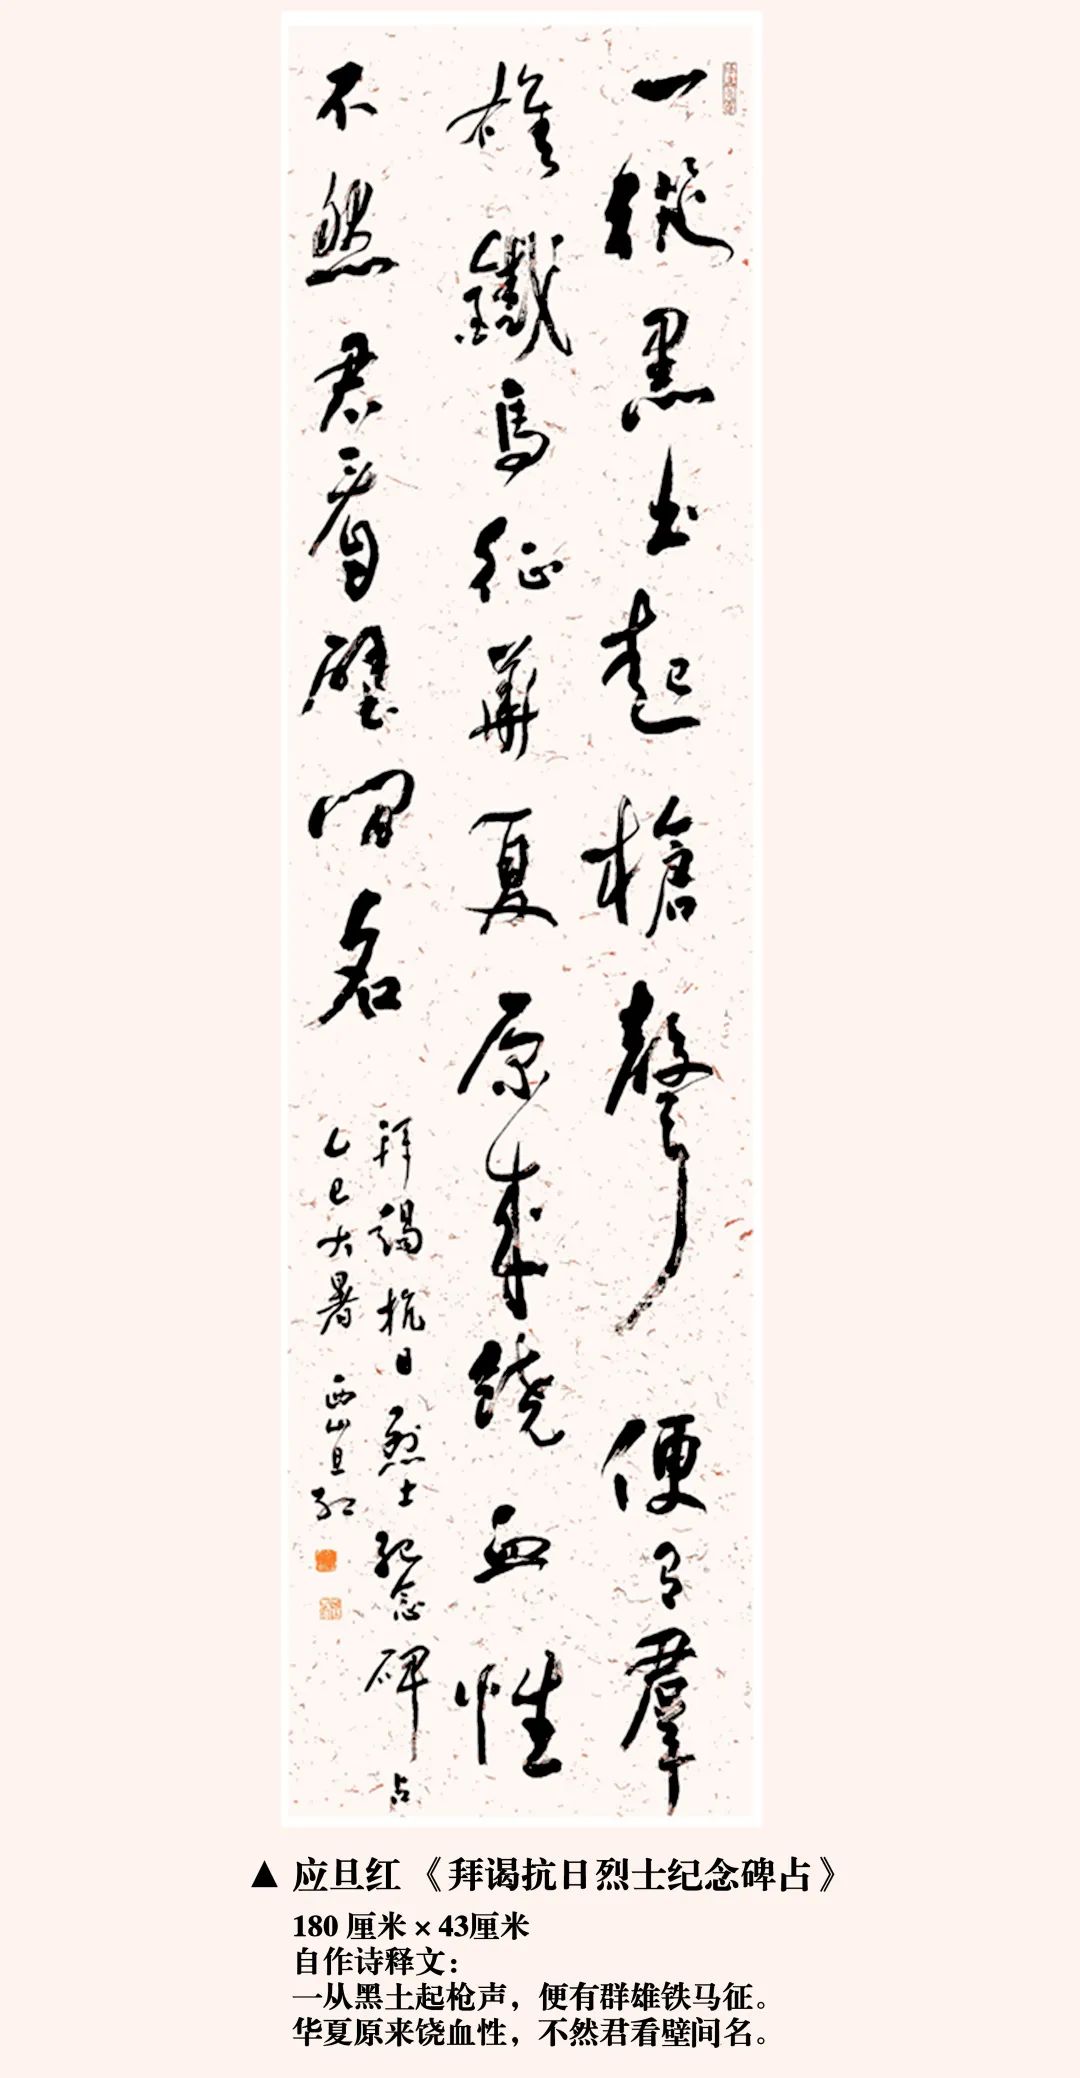 一從黑土起槍聲便有群
雄鐵馬征華夏原来饒血性
不然君看壁间名
拜謁抗日烈士紀念碑占
乙巳大暑西山旦红
▲ 应旦红《拜谒抗日烈士纪念碑占》
180 厘米 × 43厘米
自作诗释文：
一从黑土起枪声，便有群雄铁马征。
华夏原来饶血性，不然君看壁间名。